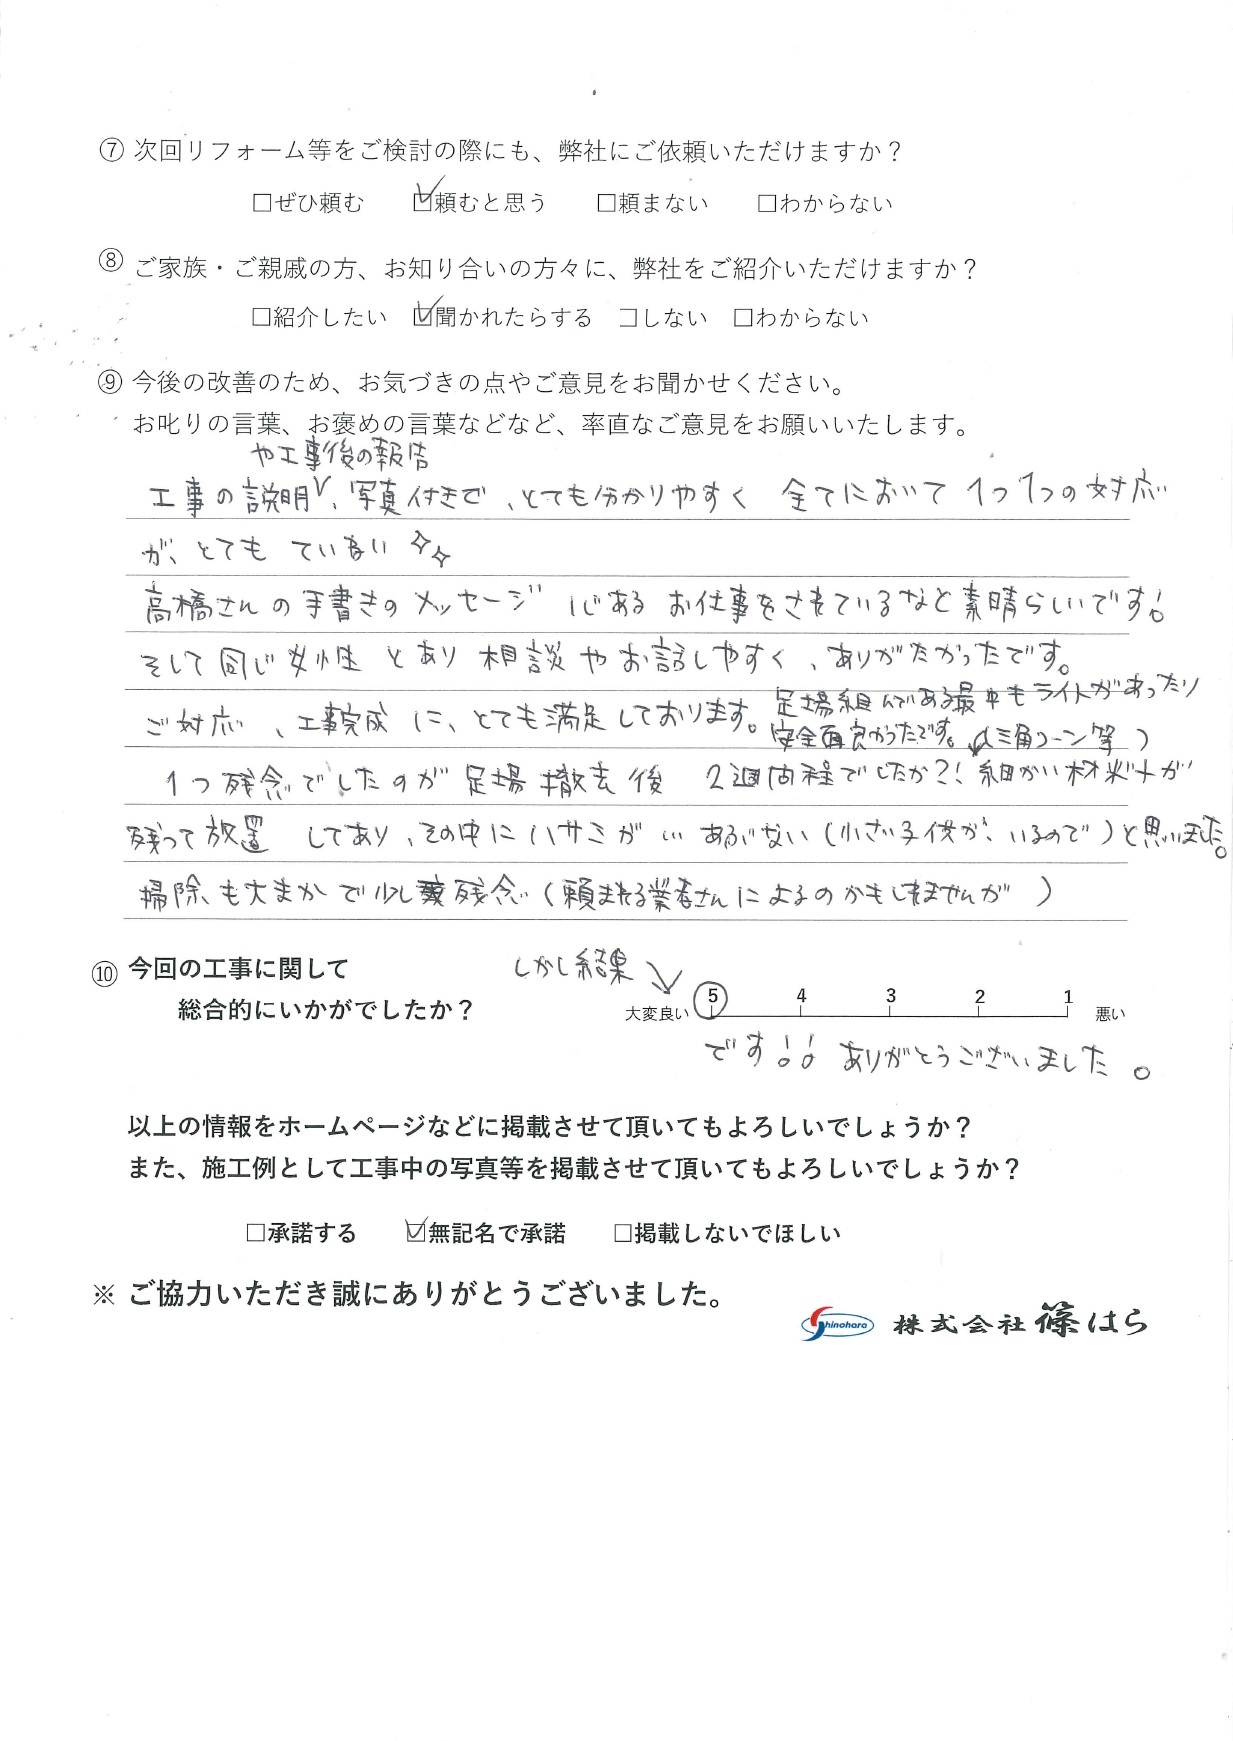 ⑦ 次回リフォーム等をご検討の際にも、弊社にご依頼いただけますか？
□ぜひ頼む ☑頼むと思う □頼まない □わからない
⑧ ご家族・ご親戚の方、お知り合いの方々に、弊社をご紹介いただけますか？
□紹介したい ☑聞かれたらする □しない □わからない
⑨ 今後の改善のため、お気づきの点やご意見をお聞かせください。
お叱りの言葉、お褒めの言葉などなど、率直なご意見をお願いいたします。
や工事後の報告
工事の説明、写真付きで、とても分かりやすく 全てにおいて 1つ1つの対応
が、とても ていねい
高橋さんの手書きのメッセージ 心ある お仕事をされているなと素晴らしいです!
そして同じ女性 とあり 相談やお話しやすく、ありがたかったです。
足場組んである最中もライトがあったり
ご対応、工事完成に、とても満足しております。
安全面良かったです。(三角コーン等)
1つ残念でしたのが 足場撤去後 2週間程でしたか?! 細かい材料が
残って放置 してあり、その中にハサミが… あぶない(小さい子供が、いるので)と思いました。
掃除も大まかで少し残念(頼まれる業者さんによるのかもしれませんが)
⑩ 今回の工事に関して
総合的にいかがでしたか？
しかし結果
大変良い 5 4 3 2 1 悪い
です!! ありがとうございました。
以上の情報をホームページなどに掲載させて頂いてもよろしいでしょうか？
また、施工例として工事中の写真等を掲載させて頂いてもよろしいでしょうか？
□承諾する ☑無記名で承諾 □掲載しないでほしい
※ ご協力いただき誠にありがとうございました。
Shinohara 株式会社 篠はら